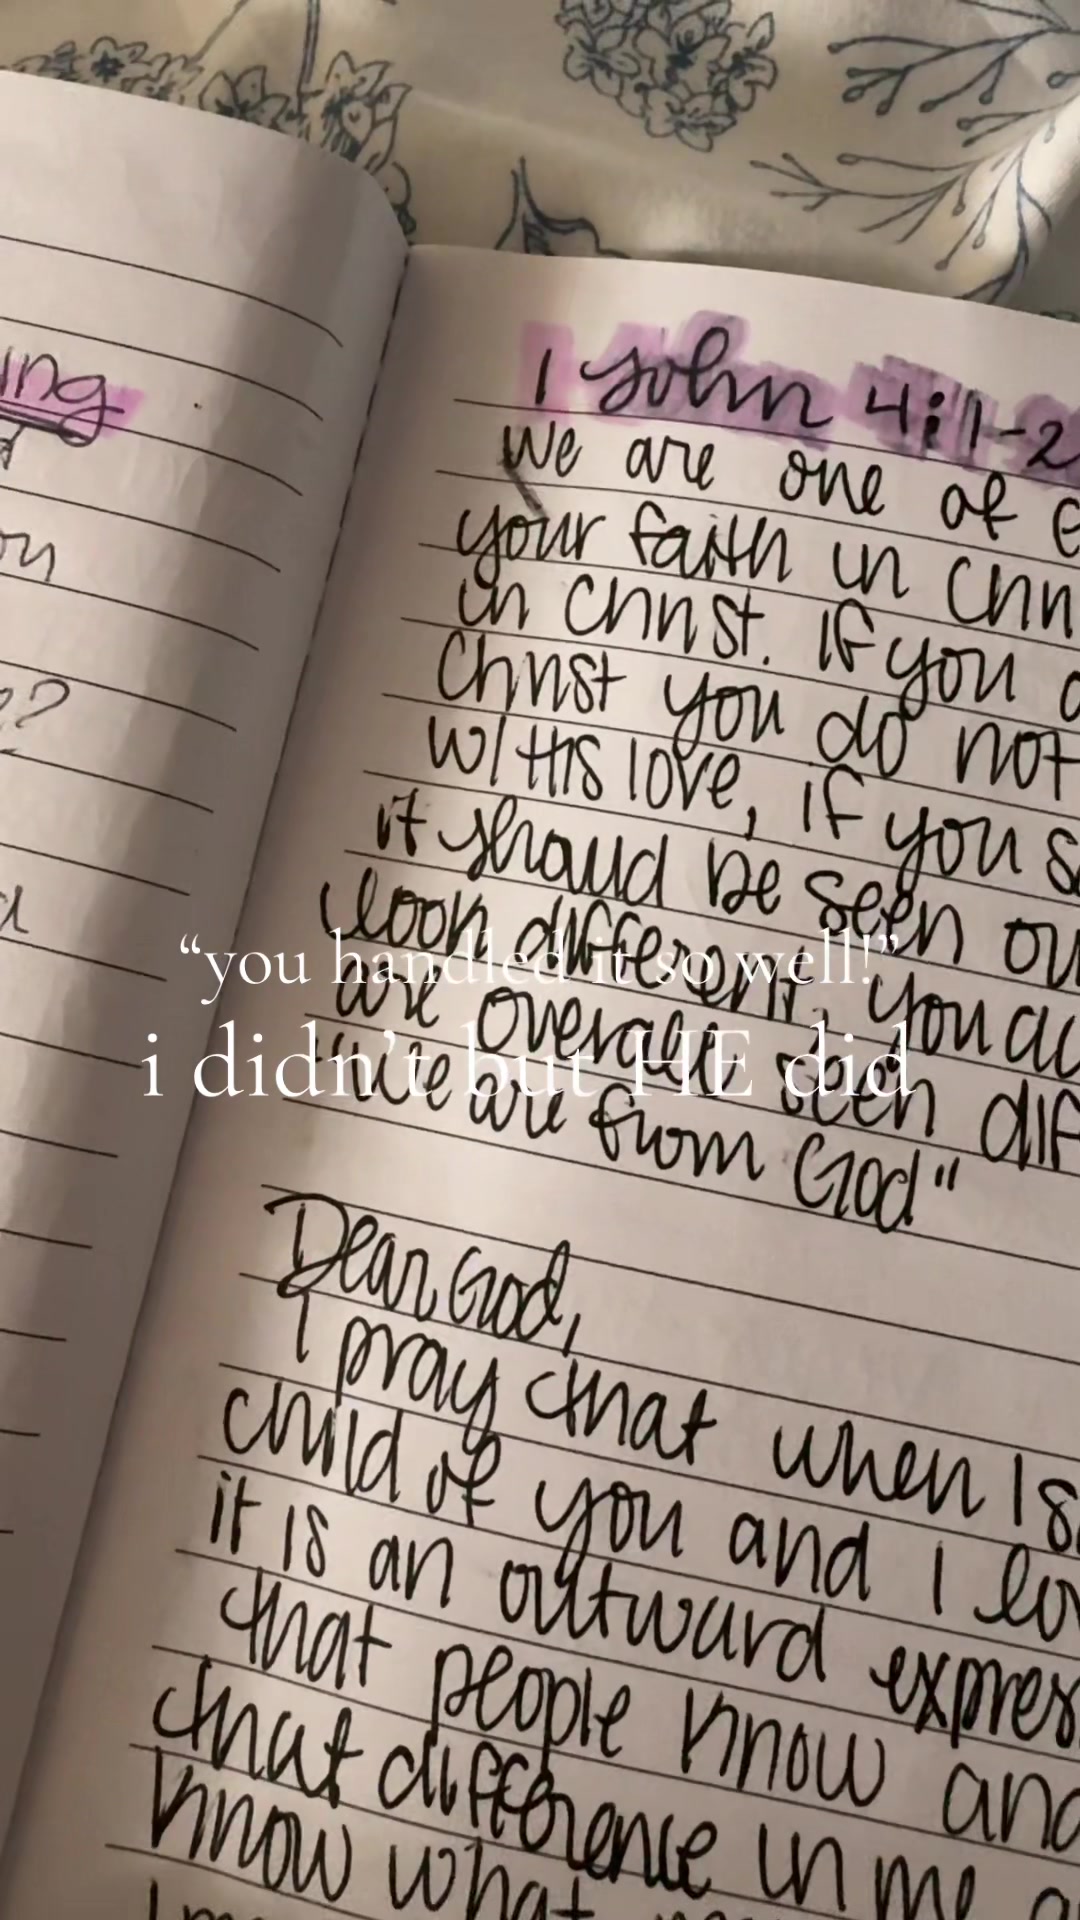 ing
?
1 John 4:1-2
We are one of
your faith in Chri
in Christ. If you
Christ you do not
w/ His love, if you s
it should be seen ou
look different, you
are overall seen dif
"We are from God"
"you handled it so well!"
i didn't but HE did
Dear God,
I pray that when I s
child of you and I lo
it is an outward expres
that people know and
that difference in me
know what